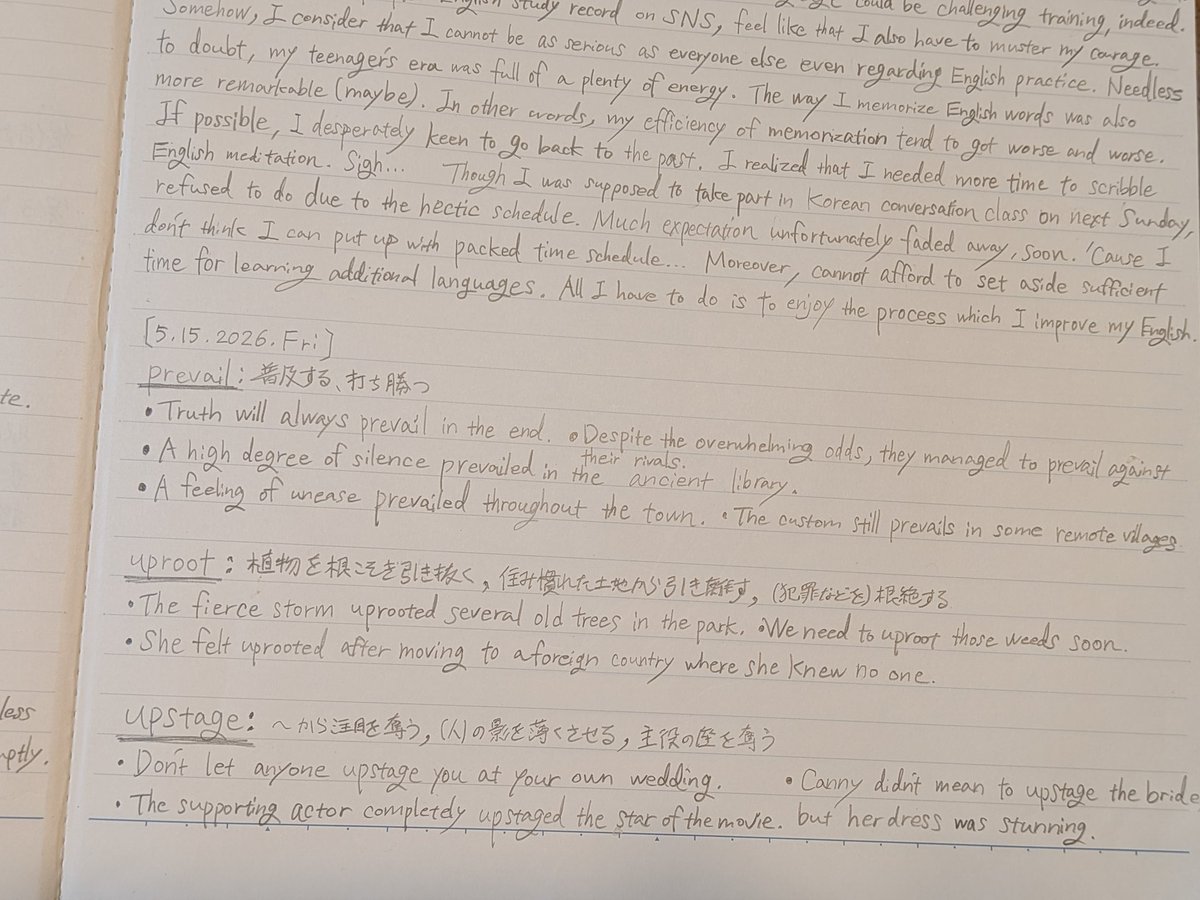 English study record on SNS, could be challenging training, indeed.
Somehow, I consider that I cannot be as serious as everyone else even regarding English practice. Needless
feel like that I also have to muster my courage.
to doubt, my teenager's era was full of a plenty of energy. The way I memorize English words was also
more remarkable (maybe). In other words, my efficiency of memorization tend to got worse and worse.
If possible, I desperately keen to go back to the past. I realized that I needed more time to scribble
English meditation. Sigh... Though I was supposed to take part in Korean conversation class on next Sunday,
refused to do due to the hectic schedule. Much expectation unfortunately faded away, soon. 'Cause I
don't think I can put up with packed time schedule... Moreover, cannot afford to set aside sufficient
time for learning additional languages. All I have to do is to enjoy the process which I improve my English.
[5.15.2026.Fri]
prevail: 普及する、打ち勝つ
• Truth will always prevail in the end. • Despite the overwhelming odds, they managed to prevail against
their rivals.
• A high degree of silence prevailed in the ancient library.
• A feeling of unease prevailed throughout the town. • The custom still prevails in some remote villages.
uproot: 植物を根こそぎ引き抜く, 住み慣れた土地から引き離す, (犯罪などを)根絶する
• The fierce storm uprooted several old trees in the park. • We need to uproot those weeds soon.
• She felt uprooted after moving to a foreign country where she knew no one.
upstage: ～から注目を奪う, (人)の影を薄くさせる, 主役の座を奪う
• Don't let anyone upstage you at your own wedding. • Canny didn't mean to upstage the bride
• The supporting actor completely upstaged the star of the movie. but her dress was stunning.
te.
less
ptly.